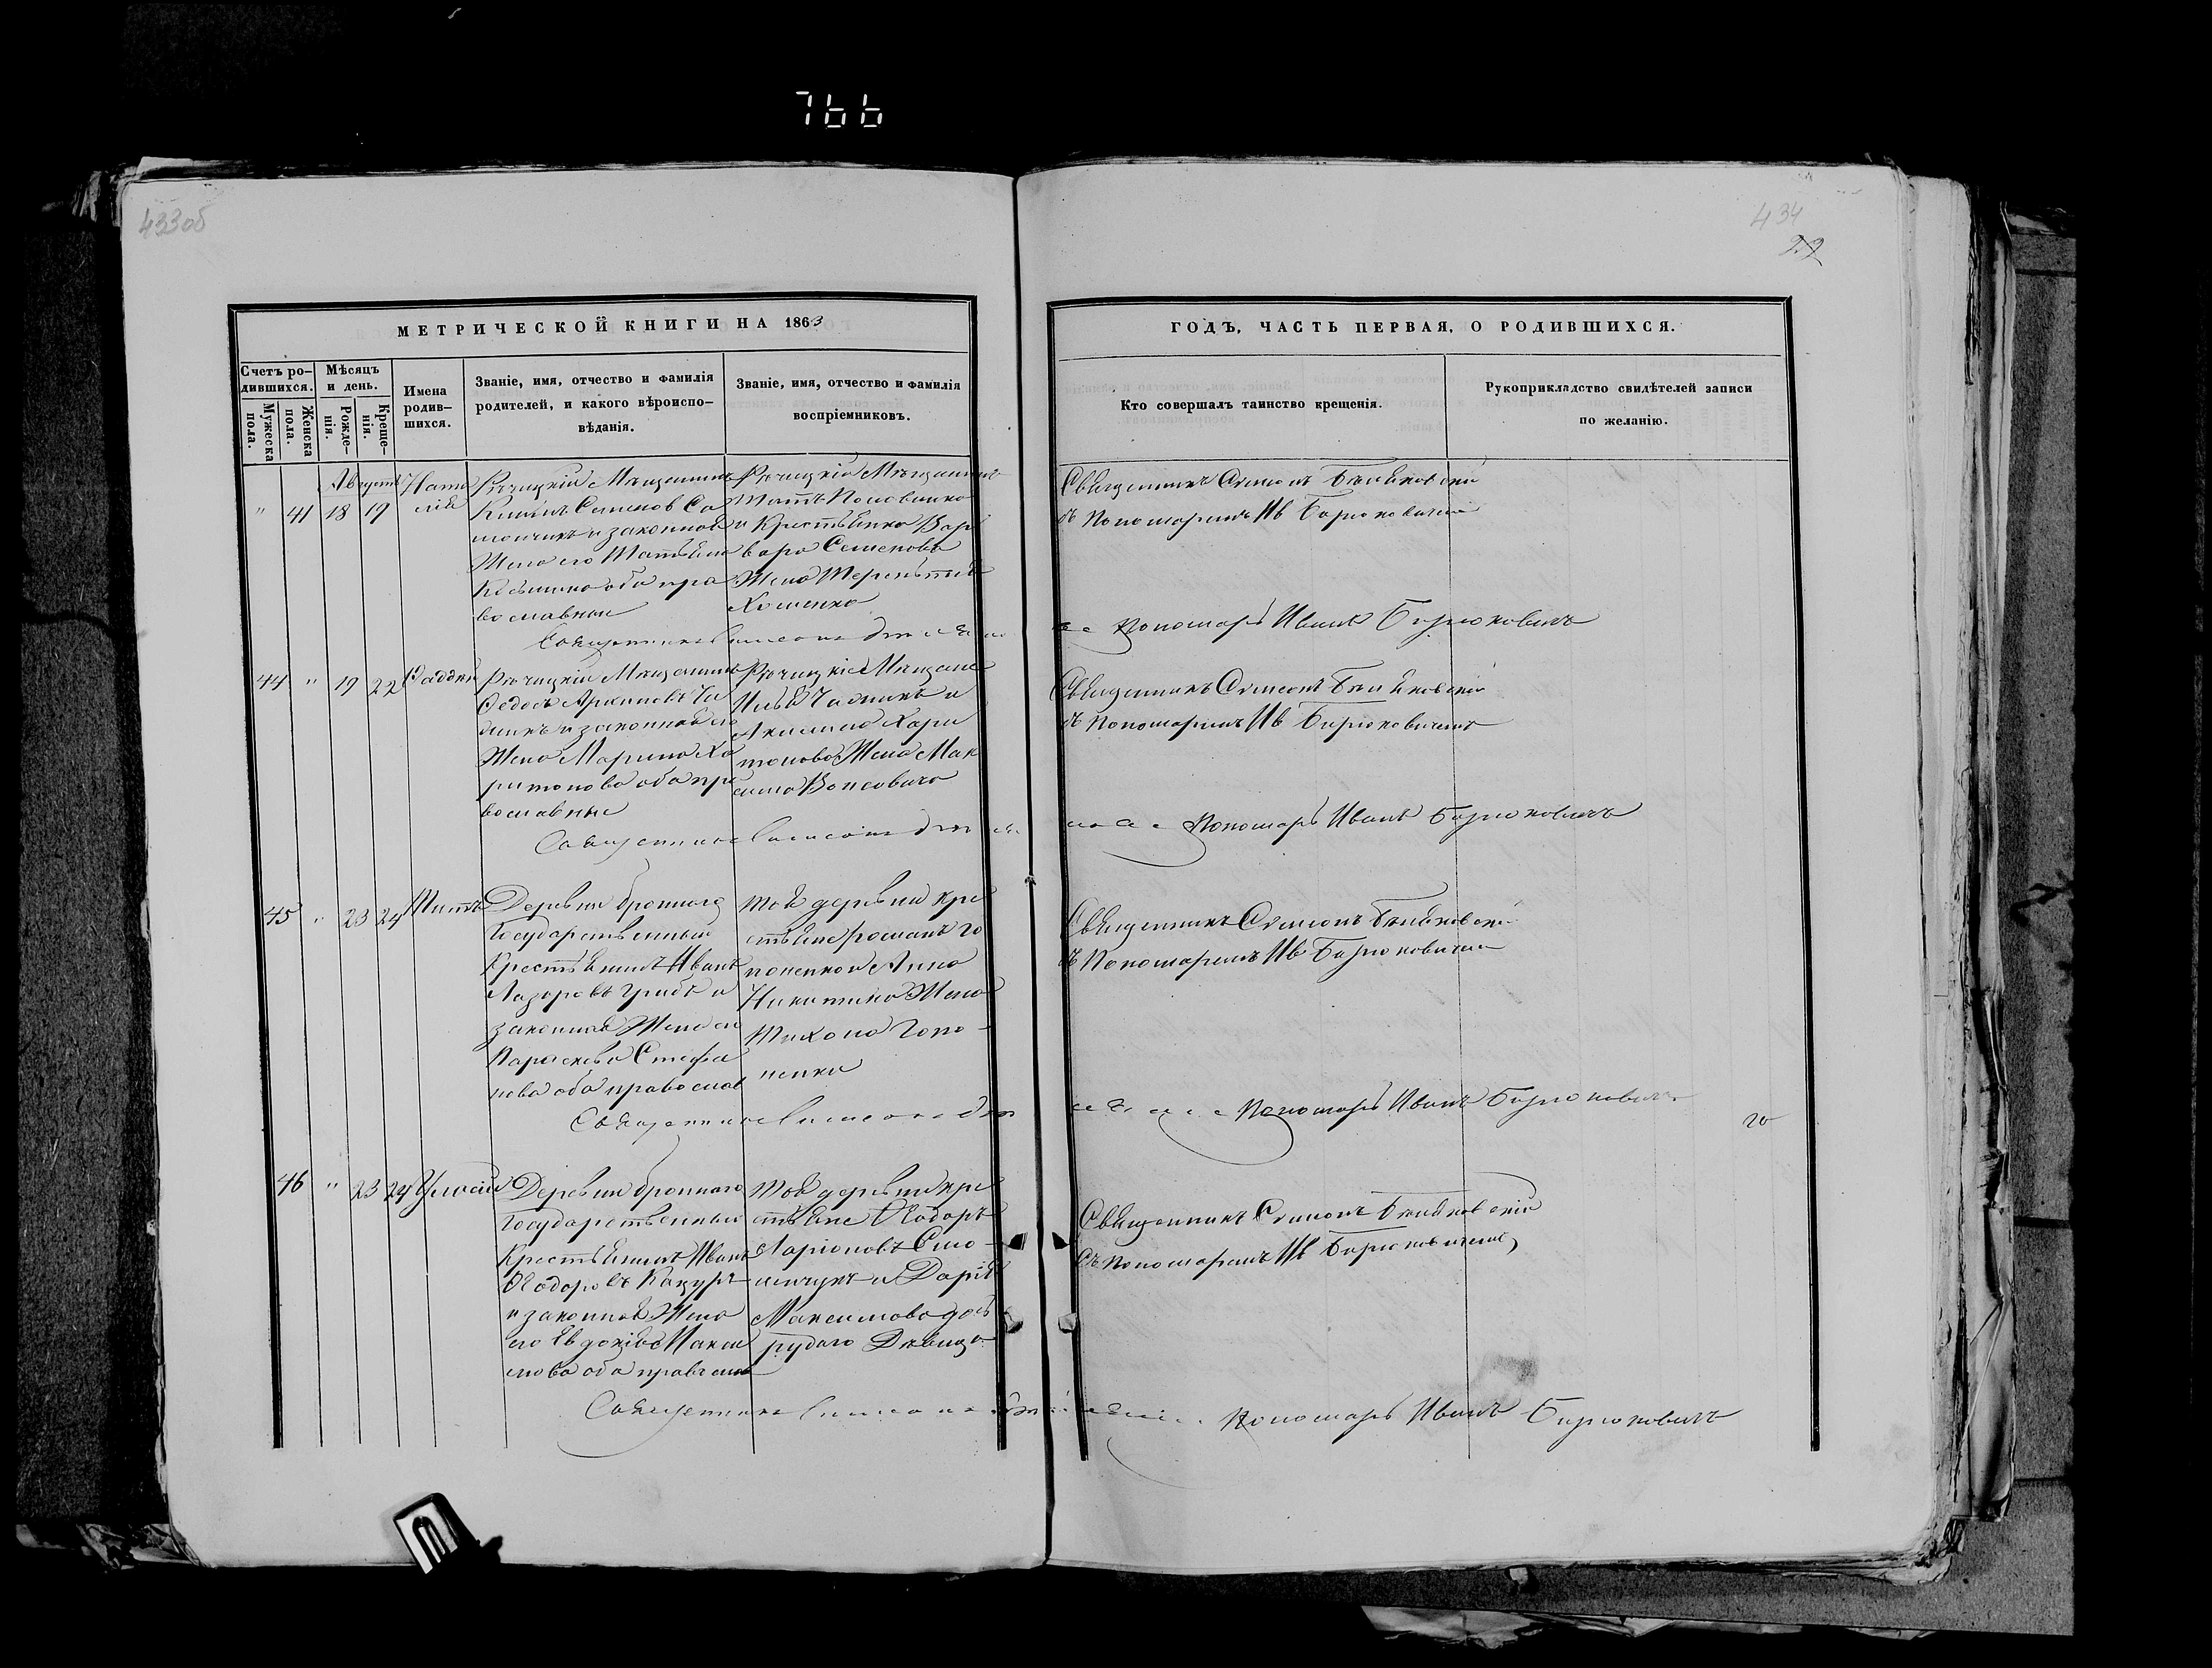 766
433об
434
22
МЕТРИЧЕСКОЙ КНИГИ НА 1863
ГОДЪ, ЧАСТЬ ПЕРВАЯ, О РОДИВШИХСЯ.
Счетъ ро-
дившихся.
Мужеска
пола.
Женска
пола.
Мѣсяцъ
и день.
Рожде-
нія.
Креще-
нія.
Имена
родив-
шихся.
Званіе, имя, отчество и фамилія
родителей, и какого вѣроиспо-
вѣданія.
Званіе, имя, отчество и фамилія
воспріемниковъ.
Кто совершалъ таинство крещенія.
Рукоприкладство свидѣтелей записи
по желанію.
Августъ
" 41 18 19
Ната
лія
Рѣчицкій Мѣщанинъ
Семенов Са
и законная
Жена его Татьяна
оба пра
вославныи
Рѣчицкій Мѣщанинъ
и Крестьянка Вар
вара Семенова
Жена Терентія
Хоменка
Священникъ Симеонъ
съ Пономаремъ Ив Бирюковичемъ
Священникъ Симеонъ
Пономарь Иванъ Бирюковичъ
44 " 19 22
Фаддей
Рѣчицкій Мѣщанинъ
Федосъ Архиповъ Ча
и законная его
Жена Марина Ха
ритонова оба пра
вославные
Рѣчицкіе Мѣщане
Илья и
Акилина Хари
тонова Жена Мак
сима
Священникъ Симеонъ
съ Пономаремъ Ив Бирюковичемъ
Священникъ Симеонъ
Пономарь Иванъ Бирюковичъ
45 " 23 24
Титъ
Деревни Броннаго
Государственный
Крестьянинъ Иванъ
Лазаревъ Грибъ и
законная Жена его
Параскева Стефа
нова оба православ
Той деревни кре
стьяне Романъ Го
поненко и Анна
Никитина Жена
Тихона Гопо-
ненки
Священникъ Симеонъ
съ Пономаремъ Ив Бирюковичемъ
Священникъ Симеонъ
Пономарь Иванъ Бирюковичъ
46 " 23 24
Деревни Броннаго
Государственный
Крестьянинъ Иванъ
Ѳеодоровъ Кацуръ
и законная Жена
его Евдокія Макси
мова оба православ
Той деревни кре
стьяне Ѳеодоръ
Ларіоновъ
и Дарія
Максимова дочь
Рудаго Дѣвица
Священникъ Симеонъ
съ Пономаремъ Ив Бирюковичемъ
Священникъ Симеонъ
Пономарь Иванъ Бирюковичъ